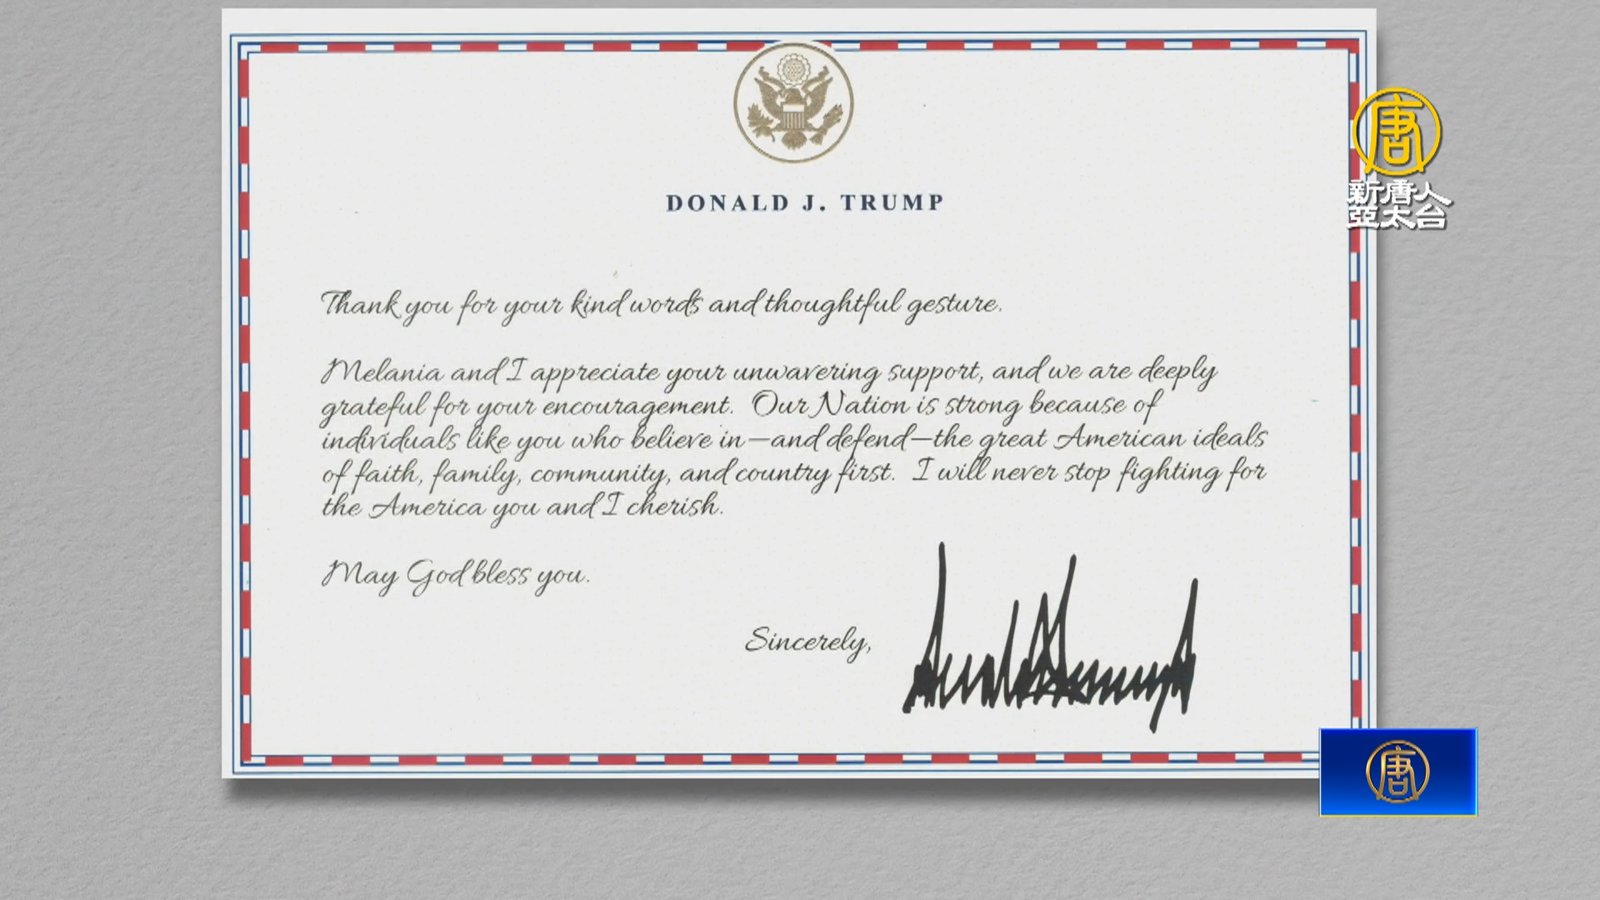 DONALD J. TRUMP
Thank you for your kind words and thoughtful gesture.
Melania and I appreciate your unwavering support, and we are deeply
grateful for your encouragement. Our Nation is strong because of
individuals like you who believe in—and defend—the great American ideals
of faith, family, community, and country first. I will never stop fighting for
the America you and I cherish.
May God bless you.
Sincerely,
Donald Trump
唐
新唐人
亞太台
唐